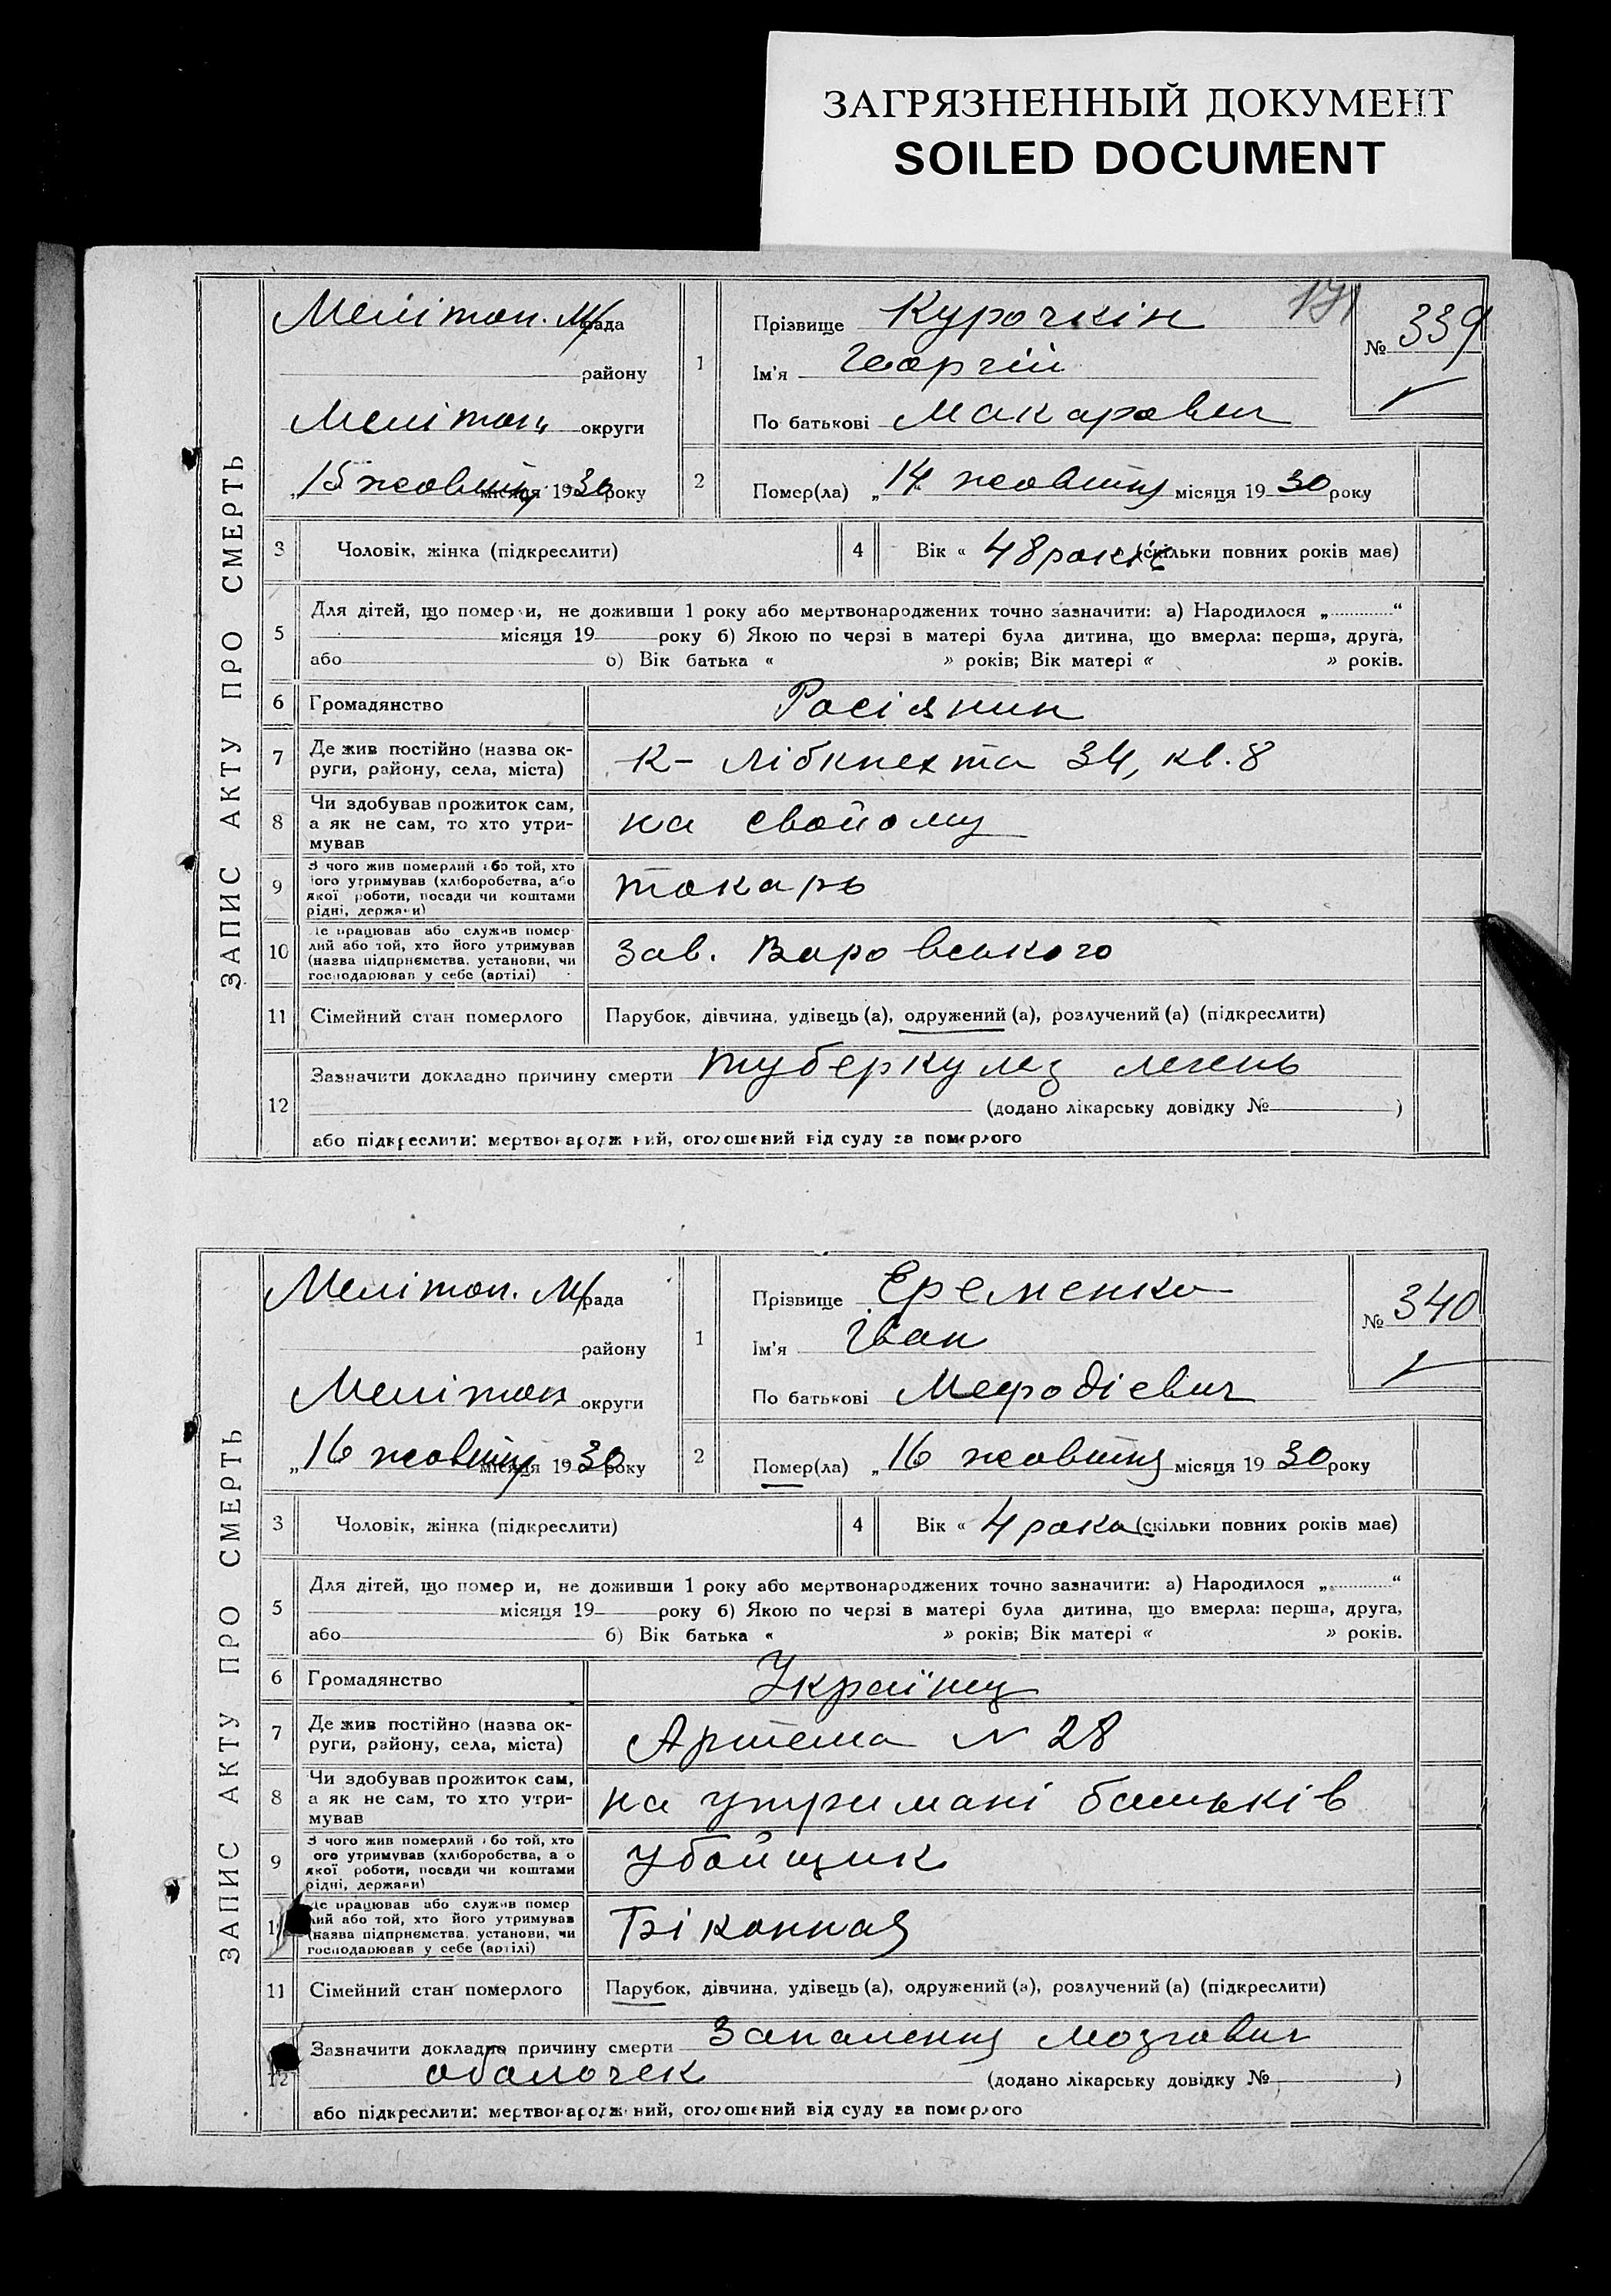 ЗАГРЯЗНЕННЫЙ ДОКУМЕНТ
SOILED DOCUMENT
ЗАПИС АКТУ ПРО СМЕРТЬ
Мелітоп. М/рада
району
Мелітоп округи
„15 жовтня місяця 1930 року
1
Прізвище Курочкін
Ім'я Георгій
По батькові Макарович
171
№ 339
2
Помер(ла) „14 жовтня місяця 1930 року
3 Чоловік, жінка (підкреслити)
4 Вік « 48 років (скільки повних років має)
5
Для дітей, що померли, не доживши 1 року або мертвонароджених точно зазначити: а) Народилося „ “
місяця 19 року б) Якою по черзі в матері була дитина, що вмерла: перша, друга,
або б) Вік батька « » років; Вік матері « » років.
6 Громадянство Росіянин
7 Де жив постійно (назва ок-
руги, району, села, міста)
К- Лібкнехта 34, кв. 8
8 Чи здобував прожиток сам,
а як не сам, то хто утри-
мував
на свойому
9 З чого жив померлий або той, хто
його утримував (хліборобства, або
якої роботи, посади чи коштами
рідні, держави)
токарь
10 Де працював або служив помер-
лий або той, хто його утримував
(назва підприємства, установи, чи
господарював у себе (артілі)
Зав. Воровського
11 Сімейний стан померлого Парубок, дівчина, удівець (а), одружений (а), розлучений (а) (підкреслити)
12
Зазначити докладно причину смерти туберкулез легень
(додано лікарську довідку № )
або підкреслити: мертвонароджений, оголошений від суду за померлого
ЗАПИС АКТУ ПРО СМЕРТЬ
Мелітоп. М/рада
району
Мелітоп округи
„16 жовтня місяця 1930 року
1
Прізвище Еременко
Ім'я Іван
По батькові Мефодієвич
№ 340
2
Помер(ла) „16 жовтня місяця 1930 року
3 Чоловік, жінка (підкреслити)
4 Вік « 4 рока (скільки повних років має)
5
Для дітей, що померли, не доживши 1 року або мертвонароджених точно зазначити: а) Народилося „ “
місяця 19 року б) Якою по черзі в матері була дитина, що вмерла: перша, друга,
або б) Вік батька « » років; Вік матері « » років.
6 Громадянство Українец
7 Де жив постійно (назва ок-
руги, району, села, міста)
Артема N 28
8 Чи здобував прожиток сам,
а як не сам, то хто утри-
мував
на утримані батьків
9 З чого жив померлий або той, хто
його утримував (хліборобства, або
якої роботи, посади чи коштами
рідні, держави)
Убойщик
Де працював або служив помер
лий або той, хто його утримував
(назва підприємства, установи, чи
господарював у себе (артілі)
11 Сімейний стан померлого Парубок, дівчина, удівець (а), одружений (а), розлучений (а) (підкреслити)
12
Зазначити докладно причину смерти Запалення мозгових
оболочек
(додано лікарську довідку № )
або підкреслити: мертвонароджений, оголошений від суду за померлого